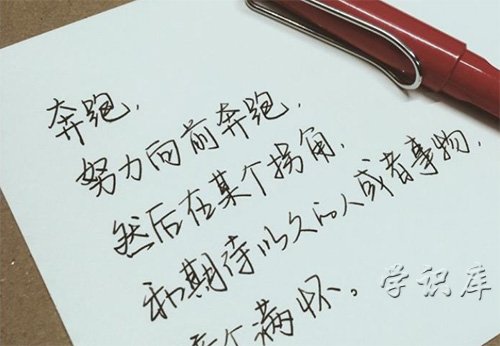 奔跑，
努力向前奔跑，
然后在某个拐角，
和期待以久的人或者事物，
个满怀。
学识库